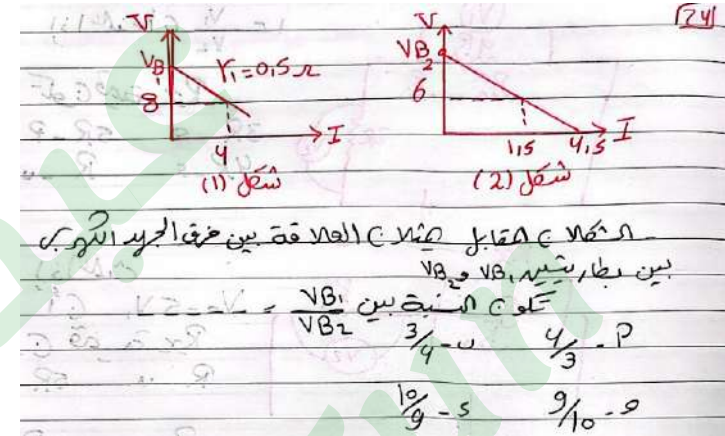 24
V
VB₁
r₁ = 0,5 Ω
8
I
4
شكل (1)
V
VB₂
6
I
1,5
4,5
شكل (2)
الشكلان المقابل يمثلان العلاقة بين فرق الجهد الكهربي
بين بطاريتين VB₁ و VB₂
تكون النسبة بين VB₁/VB₂ =
أ - 4/3 ب - 3/4
ج - 9/10 د - 10/9